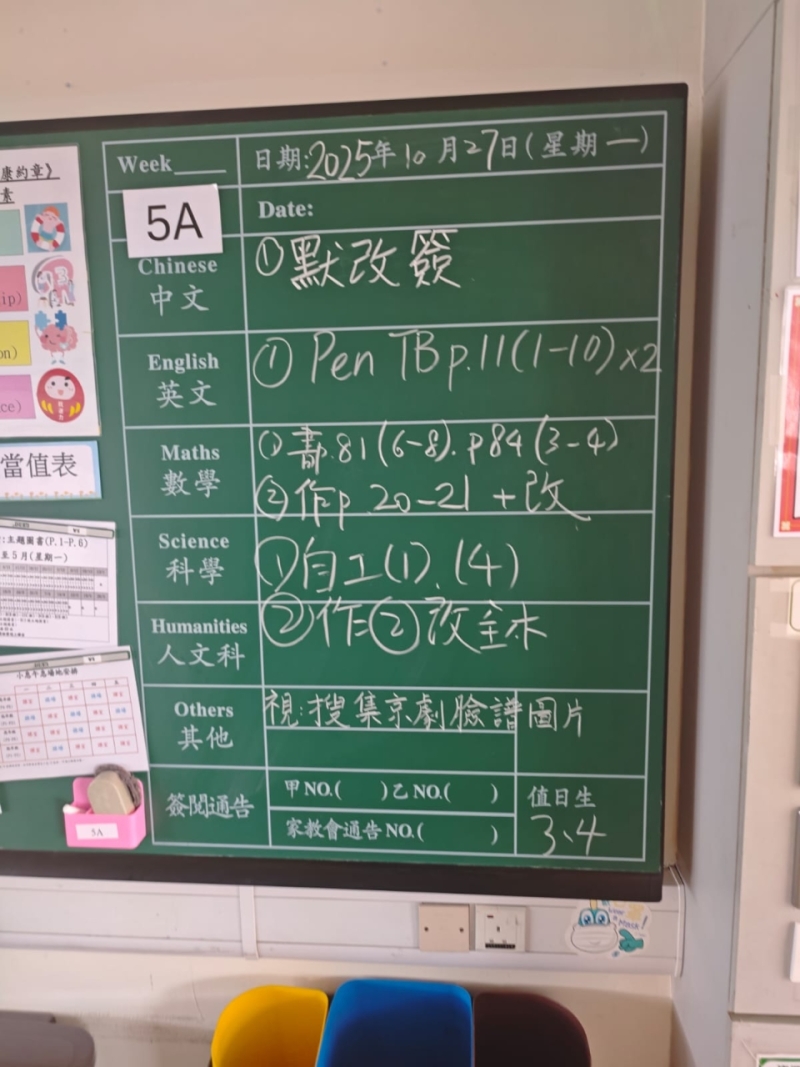 康約章》
素
ip)
on)
ce)
當值表
:主題圖書(P.1-P.6)
至5月(星期一)
小息午息場地安排
Week____
日期:2025年10月27日(星期一)
5A
Date:
Chinese
中文
①默改簽
English
英文
① Pen TB p.11(1-10)×2
Maths
數學
① 書p.81(6-8). p84(3-4)
② 作p 20-21 + 改
Science
科學
①自工(1).(4)
Humanities
人文科
②作②改
Others
其他
視:搜集京劇臉譜圖片
簽閱通告
甲NO.( )乙NO.( )
家教會通告NO.( )
值日生
3、4
5A